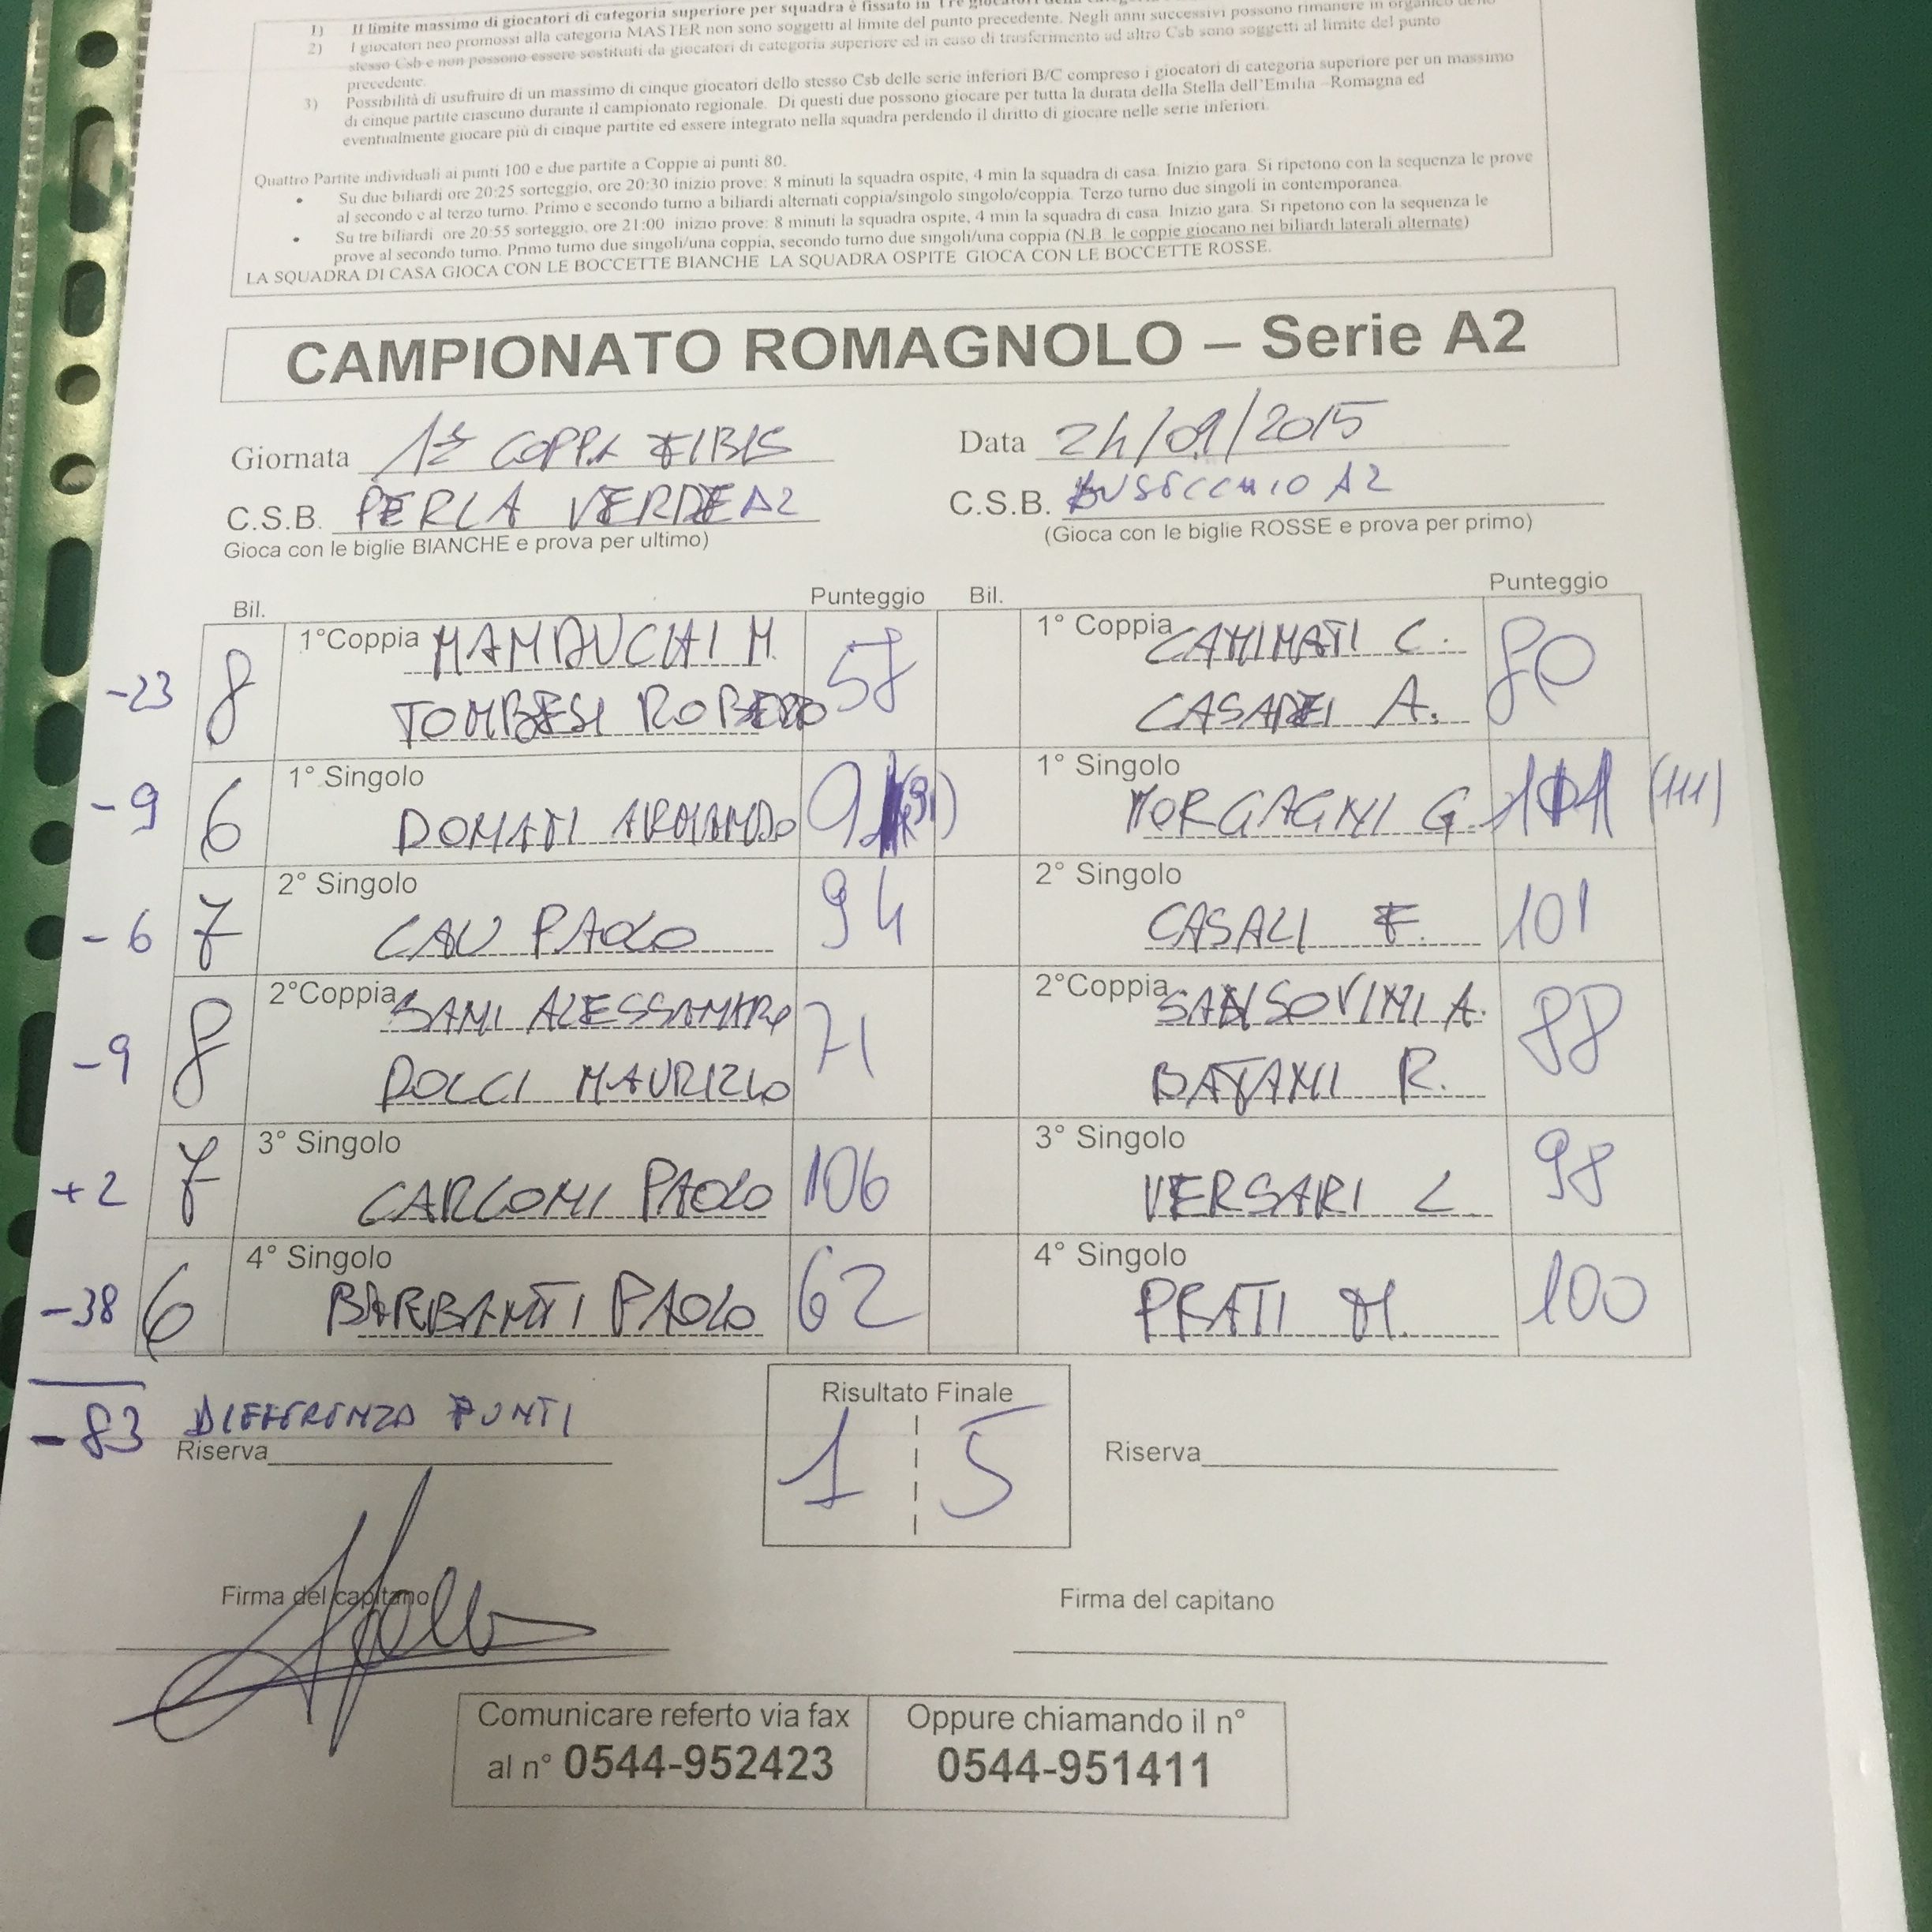 1) Il limite massimo di giocatori di categoria superiore per squadra è fissato in Tre
2) I giocatori neo promossi alla categoria MASTER non sono soggetti al limite del punto precedente. Negli anni successivi possono rimanere in organico dello
stesso Csb e non possono essere sostituiti da giocatori di categoria superiore ed in caso di trasferimento ad altro Csb sono soggetti al limite del punto
precedente.
3) Possibilità di usufruire di un massimo di cinque giocatori dello stesso Csb delle serie inferiori B/C compreso i giocatori di categoria superiore per un massimo
di cinque partite ciascuno durante il campionato regionale. Di questi due possono giocare per tutta la durata della Stella dell'Emilia –Romagna ed
eventualmente giocare più di cinque partite ed essere integrato nella squadra perdendo il diritto di giocare nelle serie inferiori.
Quattro Partite individuali ai punti 100 e due partite a Coppie ai punti 80.
• Su due biliardi ore 20:25 sorteggio, ore 20:30 inizio prove: 8 minuti la squadra ospite, 4 min la squadra di casa. Inizio gara. Si ripetono con la sequenza le prove
al secondo e al terzo turno. Primo e secondo turno a biliardi alternati coppia/singolo singolo/coppia. Terzo turno due singoli in contemporanea.
• Su tre biliardi ore 20:55 sorteggio, ore 21:00 inizio prove: 8 minuti la squadra ospite, 4 min la squadra di casa. Inizio gara. Si ripetono con la sequenza le
prove al secondo turno. Primo turno due singoli/una coppia, secondo turno due singoli/una coppia (N.B. le coppie giocano nei biliardi laterali alternate)
LA SQUADRA DI CASA GIOCA CON LE BOCCETTE BIANCHE LA SQUADRA OSPITE GIOCA CON LE BOCCETTE ROSSE.
CAMPIONATO ROMAGNOLO – Serie A2
Giornata 1ª COPPA FIBIS Data 24/01/2015
C.S.B. PERLA VERDE A2 C.S.B. BUSECCHIO A2
Gioca con le biglie BIANCHE e prova per ultimo) (Gioca con le biglie ROSSE e prova per primo)
Bil. Punteggio Bil. Punteggio
-23 8 1°Coppia MANDUCHI M. 58 1° Coppia CAMINATI C. 80
TOMBESI ROBERTO CASADEI A.
-9 6 1° Singolo 91 (91) 1° Singolo 101 (111)
DONATI ARMANDO MORGAGNI G.
-6 7 2° Singolo 94 2° Singolo 101
CAU PAOLO CASALI F.
-9 8 2°Coppia SAMI ALESSANDRO 71 2°Coppia SANSOVINI A. 88
DOLCI MAURIZIO BATANI R.
+2 7 3° Singolo 106 3° Singolo 98
CARLONI PAOLO VERSARI L.
-38 6 4° Singolo 62 4° Singolo 100
BARBANTI PAOLO PRATI M.
-83 DIFFERENZA PUNTI
Riserva Risultato Finale Riserva
1 5
Firma del capitano Firma del capitano
Comunicare referto via fax Oppure chiamando il n°
al n° 0544-952423 0544-951411